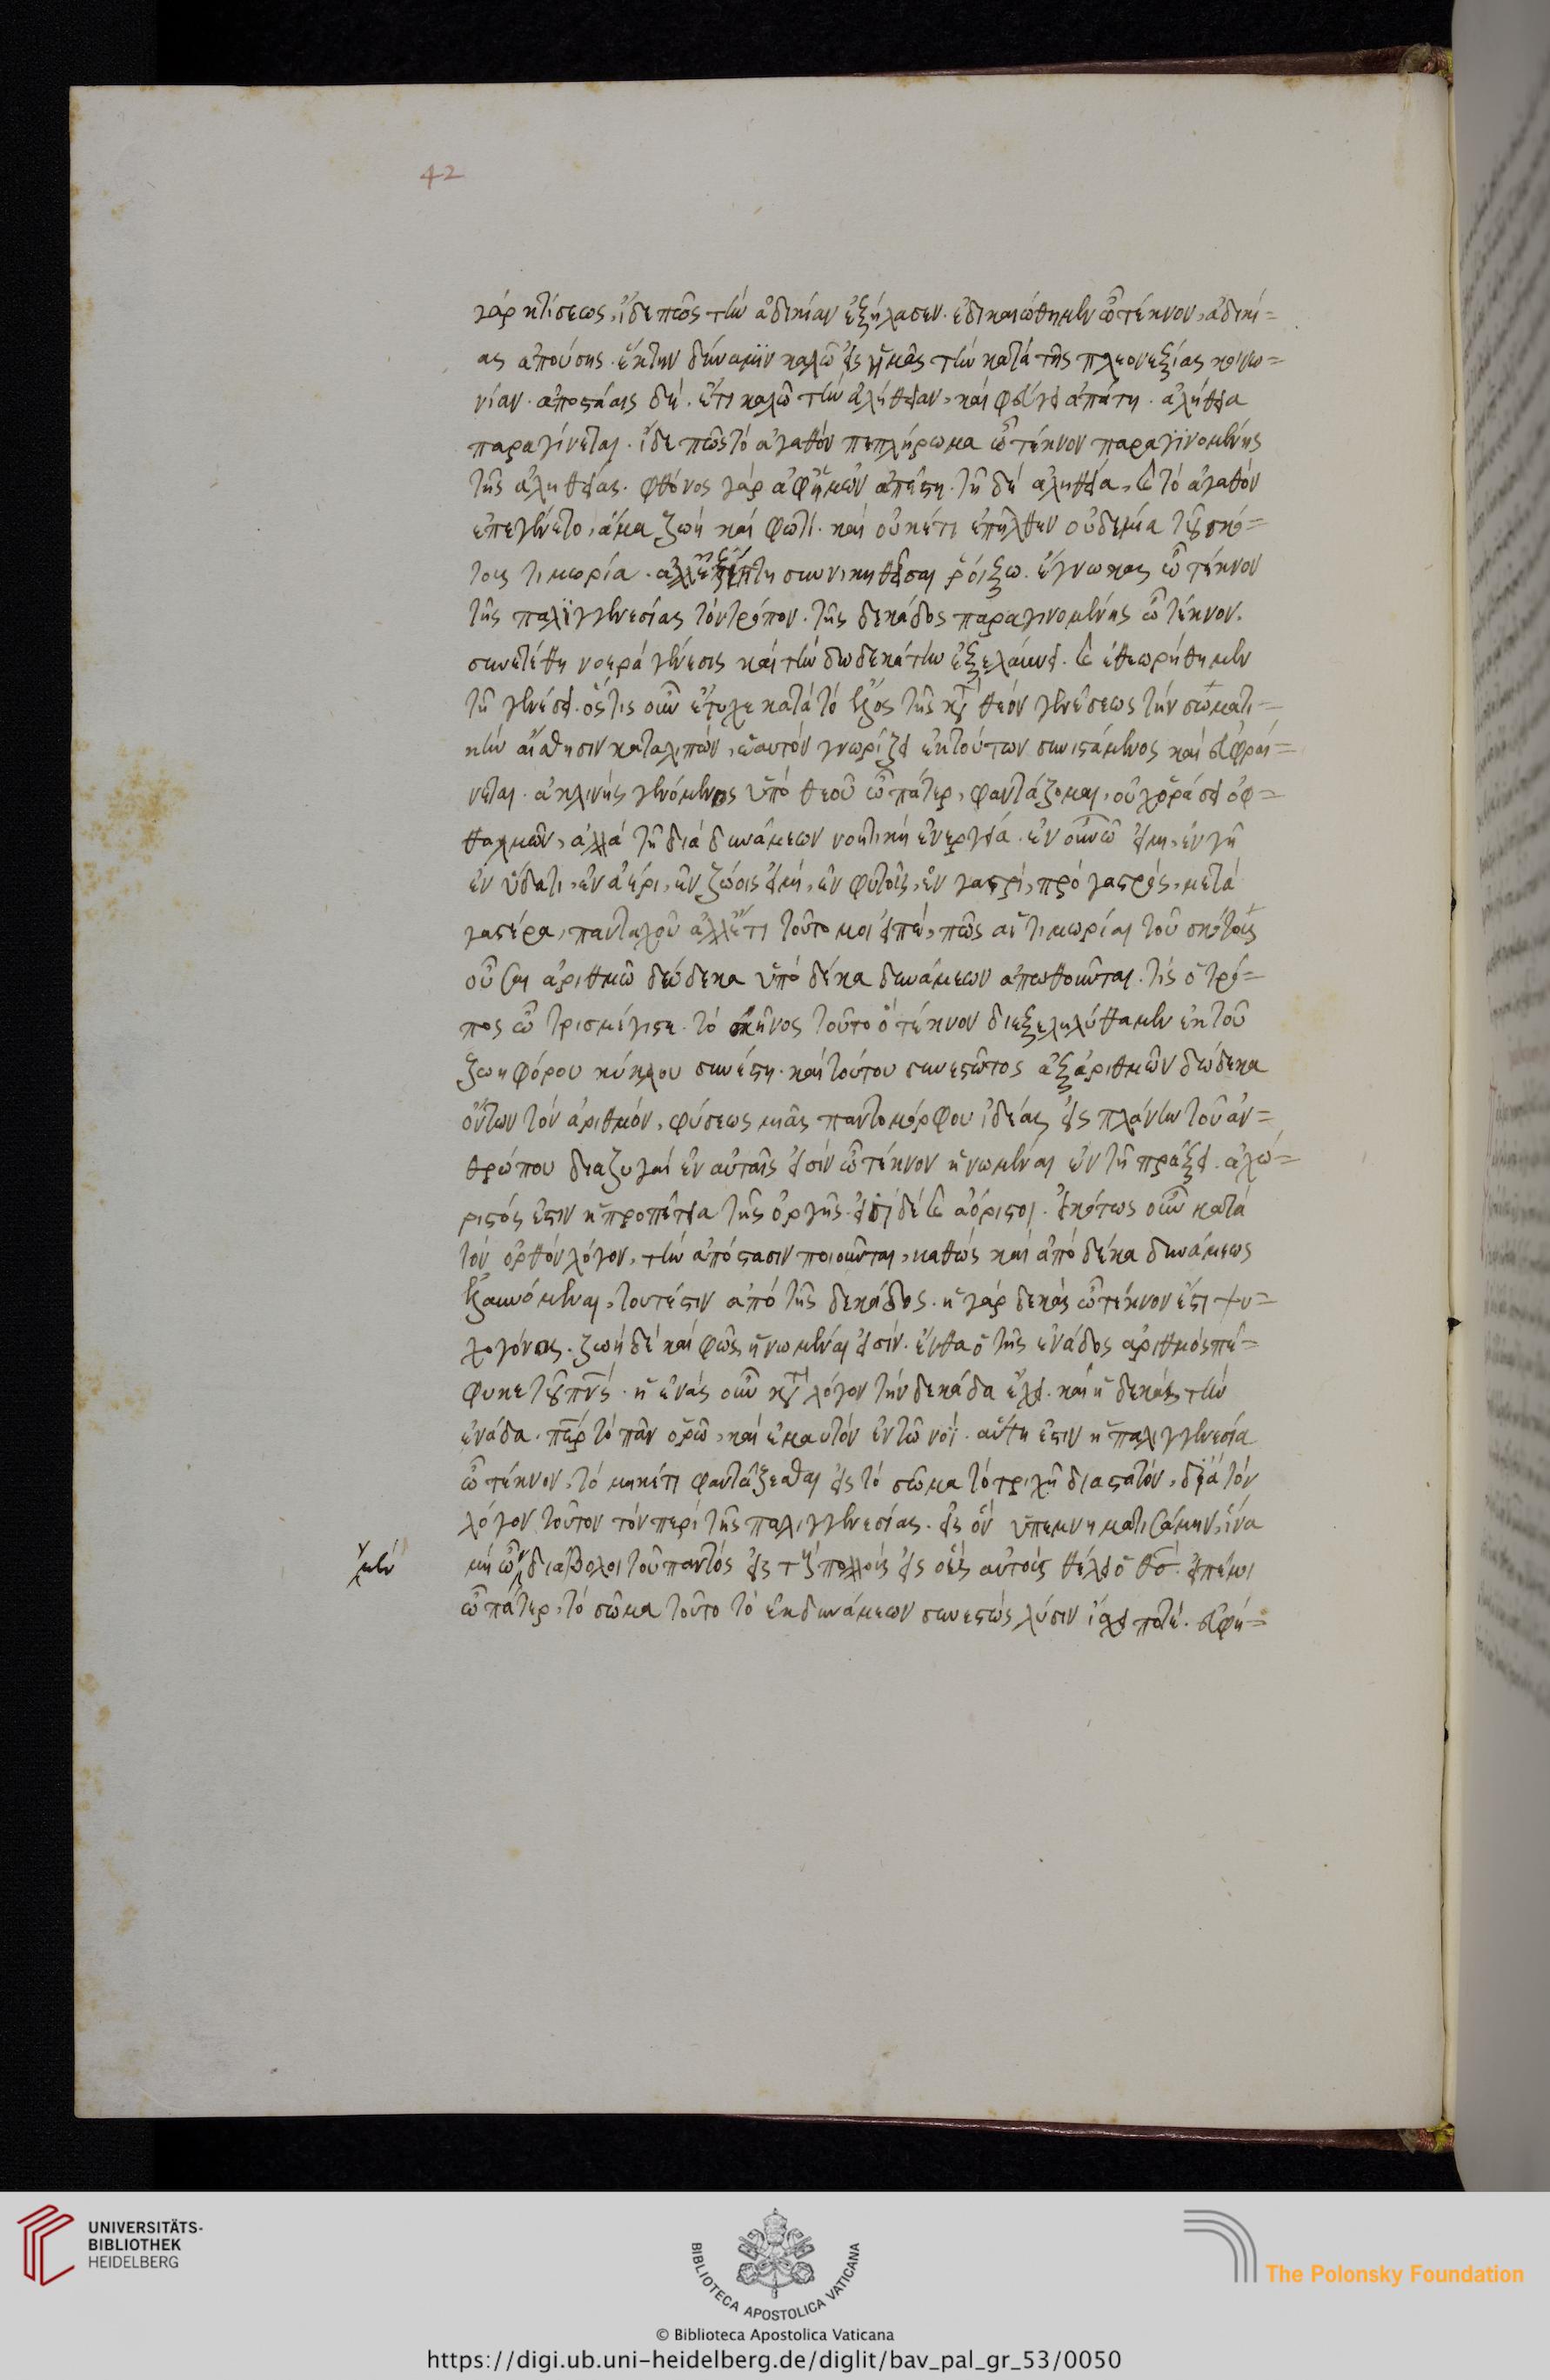 42
γάρ κτίσεως, ἴδε πῶς τὴν ἀδικίαν ἐξήλασεν. ἐδικαιώθημεν ὦ τέκνον, ἀδικί=
ας ἀπούσης. ἕκτην δύναμιν καλῶ εἰς ἡμᾶς τὴν κατά τῆς πλεονεξίας κοινω=
νίαν. ἀποστάσης δέ. ἔτι καλῶ τὴν ἀλήθειαν, καί φεύγει ἀπάτη. ἀλήθεια
παραγίνεται. ἴδε πῶς τό ἀγαθόν πεπλήρωμα ὦ τέκνον παραγινομένης
τῆς ἀληθείας. φθόνος γάρ ἀφ' ἡμῶν ἀπέστη. τῆ δέ ἀληθεία, καὶ τό ἀγαθόν
ἐπεγένετο, ἅμα ζωή καί φωτί. καί οὐκέτι ἐπῆλθεν οὐδεμία τοῦ σκό=
τους τιμωρία. ἀλλ' ἐξέπτη συννικηθεῖσαι ῥόιξω. ἔγνωκας ὦ τέκνον
τῆς παλιγγενεσίας τόν τρόπον. τῆς δεκάδος παραγινομένης ὦ τέκνον.
συνετέθη νοερά γένεσις καί τὴν δωδεκάτην ἐξελαύνει. καὶ ἐθεωρήθημεν
τῆ γενέσει. ὅςτις οὖν ἔτυχε κατά τό ἔλεος τῆς κατὰ θεόν γενέσεως τήν σωματι=
κὴν αἴσθησιν καταλιπών, ἑαυτόν γνωρίζει ἐκ τούτων συνιστάμενος καί εὐφραί=
νεται. ἀκλινής γενόμενος ὑπό θεοῦ ὦ πάτερ, φαντάζομαι, οὐχ ὁράσει ὀφ=
θαλμῶν, ἀλλά τῆ διά δυνάμεων νοητικῆ ἐνεργεία. ἐν οὐνῶ εἰμι, ἐν γῆ
ἐν ὕδατι, ἐν ἀέρι, ἐν ζώοις εἰμί, ἐν φυτοῖς, ἐν γαστρί, πρό γαστρός, μετά
γαστέρα, πανταχοῦ ἀλλ' ἔτι τοῦτο μοι εἰπέ, πῶς αἱ τιμωρίαι τοῦ σκότους
οὖσαι ἀριθμῶ δώδεκα ὑπό δέκα δυνάμεων ἀπωθοῦνται. τίς ὁ τρό=
πος ὦ τρισμέγιστε. τό σκῆνος τοῦτο ὁ τέκνον διεξεληλύθαμεν ἐκ τοῦ
ζωηφόρου κύκλου συνέστη. καί τούτου συνεστῶτος ἀξ ἀριθμῶν δώδεκα
ὄντων τόν ἀριθμόν, φύσεως μιᾶς παντομόρφου ἰδέας εἰς πλάνην τοῦ ἀν=
θρώπου διαζυγαί ἐν αὐταῖς εἰσίν ὦ τέκνον ἡνωμέναι ἐν τῆ πράξει. ἀχώ=
ριστός ἐστιν ἡ προπέτεια τῆς ὀργῆς. εἰσί δέ καὶ ἀόριστοι. εἰκότως οὖν κατά
τόν ὀρθόν λόγον, τὴν ἀπόστασιν ποιοῦνται, καθώς καί ἀπό δέκα δυνάμεως
ἐλαυνόμεναι, τουτέστιν ἀπό τῆς δεκάδος. ἡ γάρ δεκάς ὦ τέκνον ἐστι ψυ=
χογόνος. ζωή δέ καί φῶς ἡνωμέναι εἰσίν. ἔνθα ὁ τῆς ἑνάδος ἀριθμός πέ=
φυκε τοῦ πνς. ἡ ἑνάς οὖν κατὰ λόγον τήν δεκάδα ἔχει. καί ἡ δεκάς τὴν
ἑνάδα. περ τό πᾶν ὁρῶ, καί ἐμαυτόν ἐν τῶ νοΐ. αὕτη ἐστιν ἡ παλιγγενεσία
ὦ τέκνον, τό μηκέτι φαντάζεσθαι εἰς τό σῶμα τό τριχῆ διαστατόν, διά τόν
λόγον τοῦτον τόν περί τῆς παλιγγενεσίας. εἰς ὅν ὑπεμνηματισάμην, ἵνα
μή ὦν διάβολοι τοῦ παντός εἰς τοὺς πολλούς εἰς οὕς αὐτοίς θέλει ὁ θς. εἰπέ μοι
ὦ πάτερ, τό σῶμα τοῦτο τό ἐκ δυνάμεων συνεστώς λύσιν ἴσχει ποτέ. εὐφή=
UNIVERSITÄTS-
BIBLIOTHEK
HEIDELBERG
BIBLIOTECA APOSTOLICA VATICANA
The Polonsky Foundation
© Biblioteca Apostolica Vaticana
https://digi.ub.uni-heidelberg.de/diglit/bav_pal_gr_53/0050